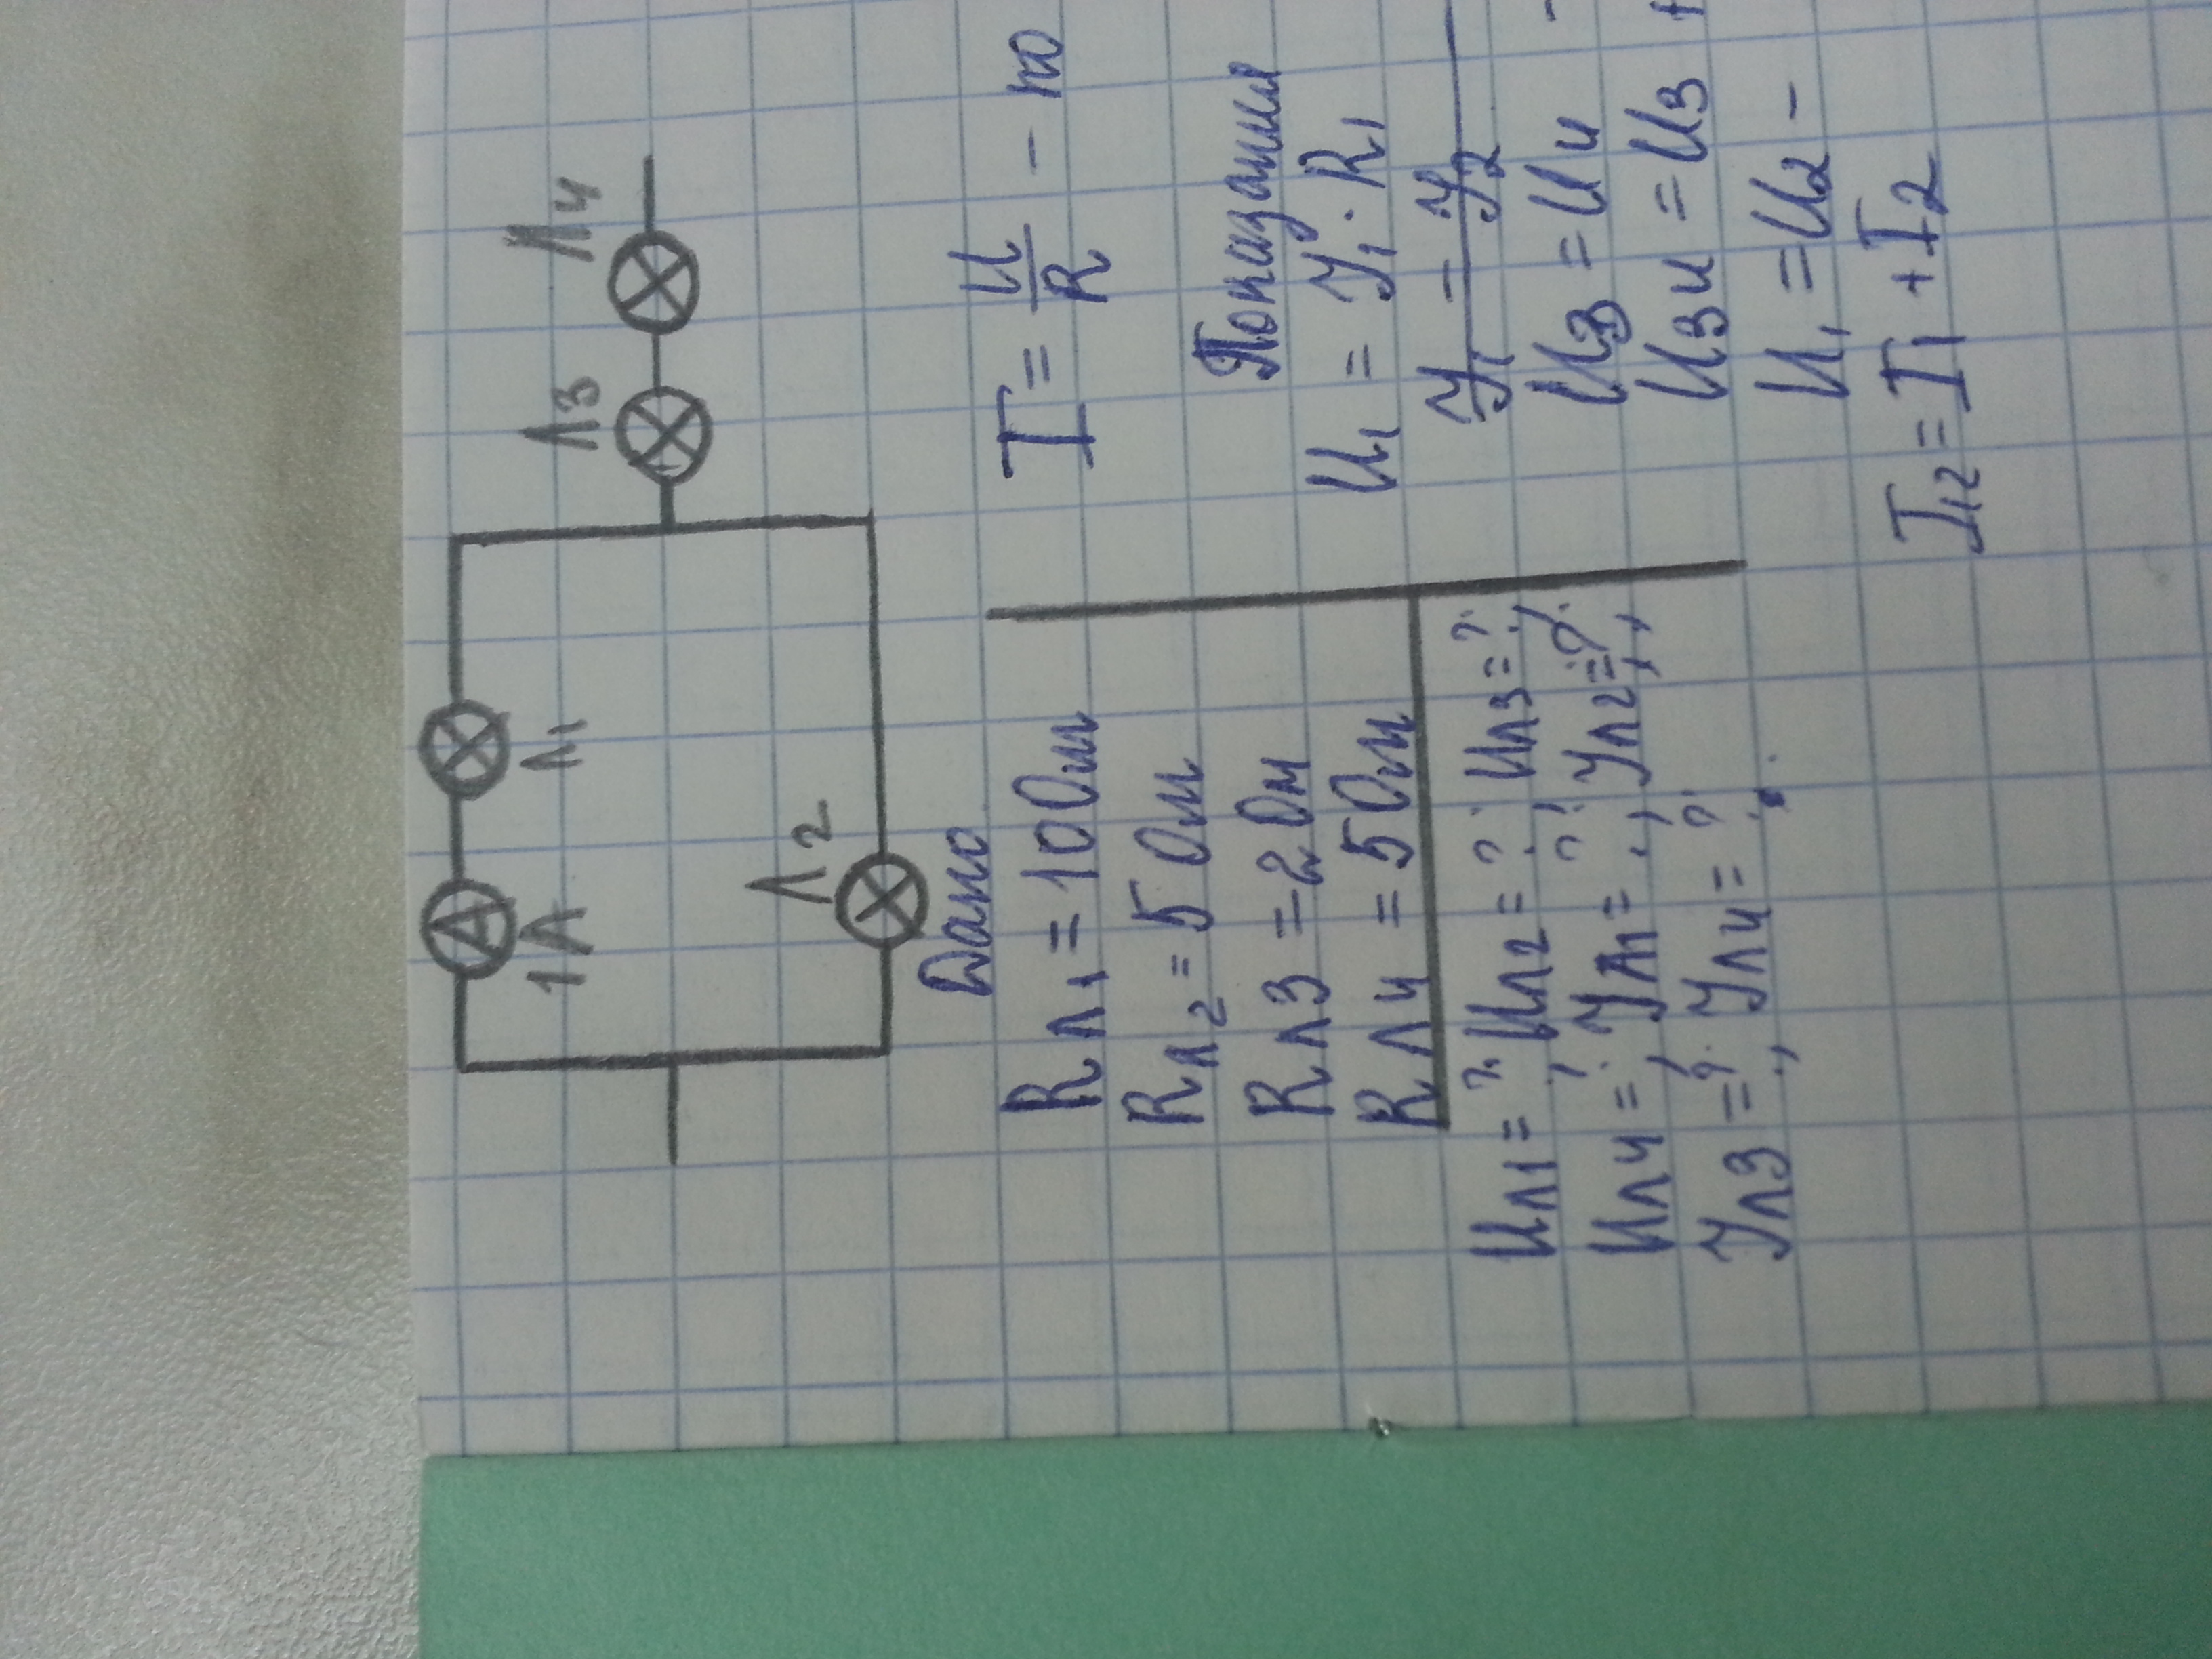 Л3 Л4
1А Л1
Л2
Дано
Rл1 = 10 Ом
Rл2 = 5 Ом
Rл3 = 2 Ом
Rл4 = 5 Ом
Uл1 = ?, Uл2 = ?, Uл3 = ?,
Uл4 = ?, Iл1 = ?, Iл2 = ?,
Iл3 = ?, Iл4 = ?
I = U/R - по
Показания
U1 = I1 · R1
I1 = I2
U3 = U4
U34 = U3 +
U1 = U2 -
I12 = I1 + I2